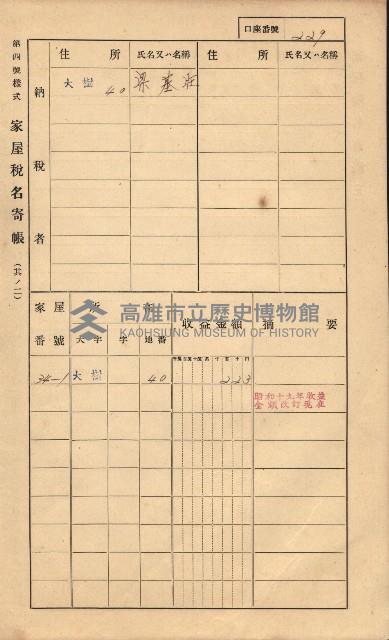 口座番號 229
第四號樣式
家屋稅名寄帳
(其ノ二)
納稅者
住所 氏名又ハ名稱 住所 氏名又ハ名稱
大樹 40 梁基旺
家屋番號 家屋所在 收益金額 摘要
大字 字 地番
高雄市立歷史博物館
KAOHSIUNG MUSEUM OF HISTORY
34-1 大樹 40 223
昭和十九年收益
金額改訂現在